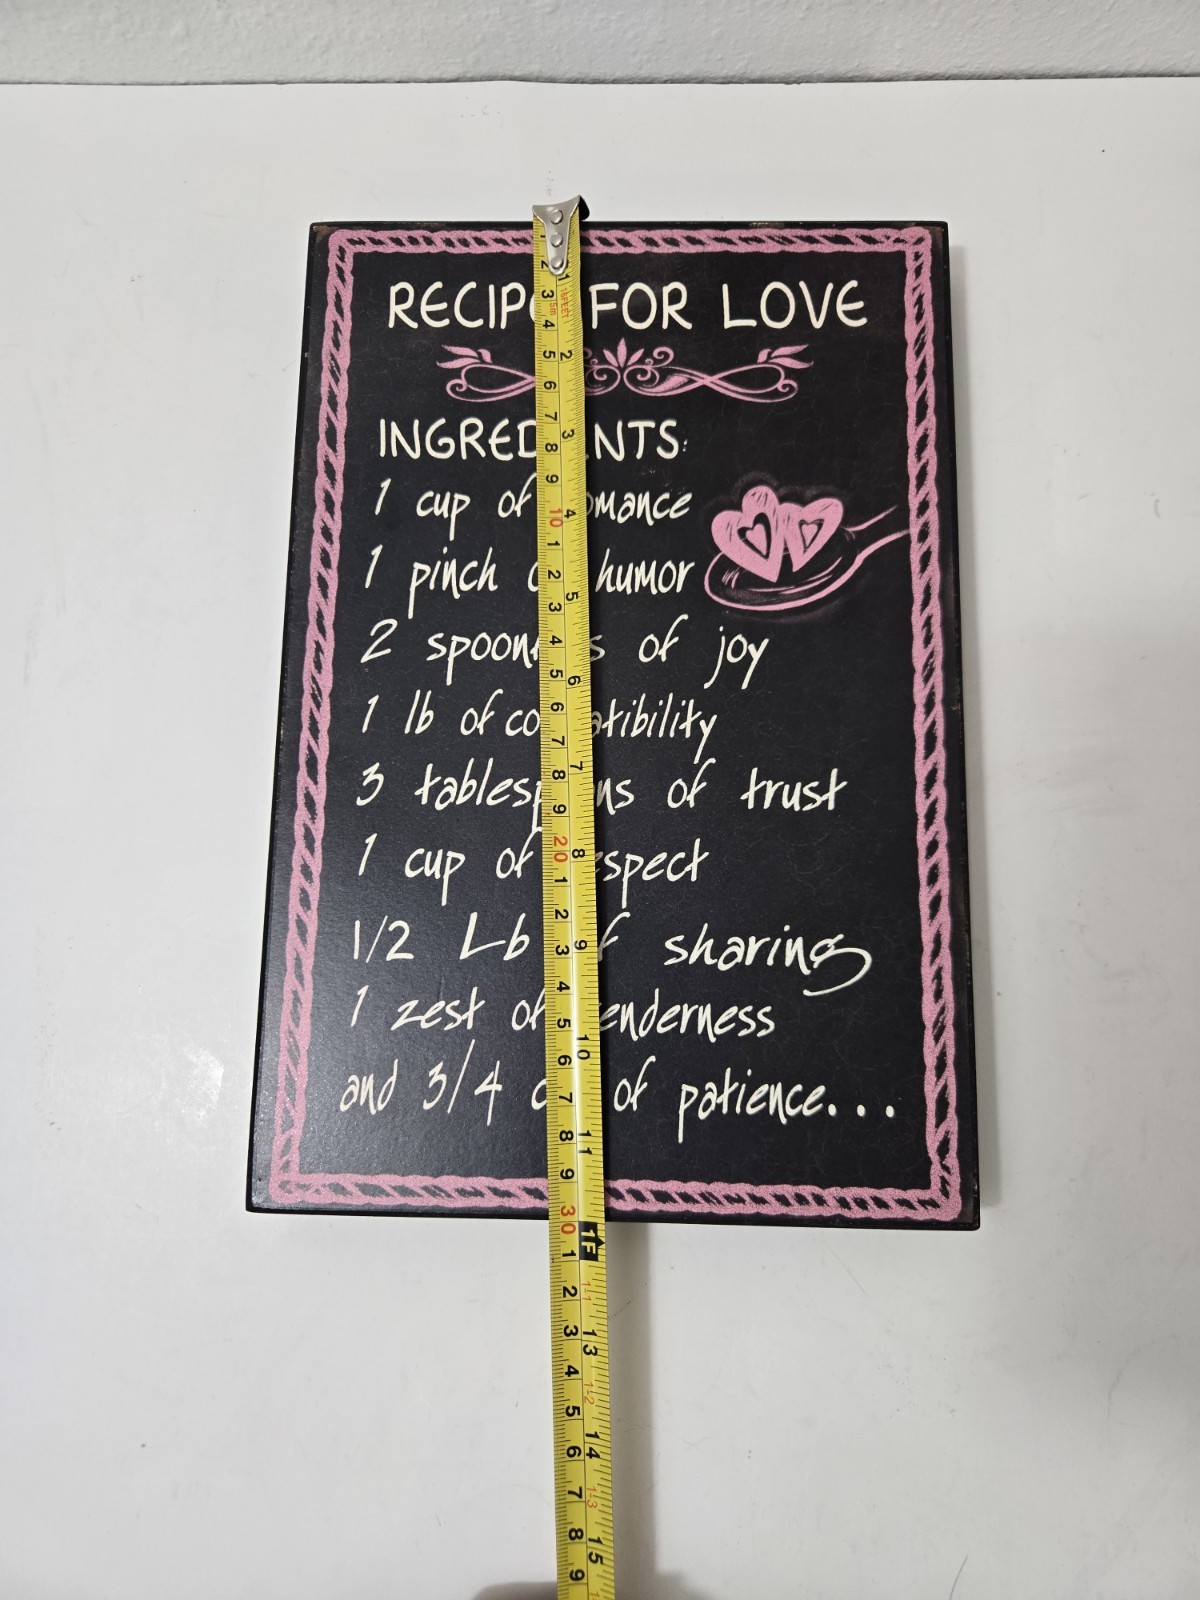 RECIP FOR LOVE
INGRED NTS:
1 cup of omance
1 pinch humor
2 spoon s of joy
1 lb of co atibility
3 tablesp ns of trust
1 cup of espect
1/2 Lb f sharing
1 zest of enderness
and 3/4 c of patience...
1 2 3 4 5 6 7 8 9 10 1 2 3 4 5 6 7 8 9 20 1 2 3 4 5 6 7 8 9 30 1 2 3 4 5 6 7 8 9
1 16FEET 5m 2 3 4 5 6 7 8 9 10 11 1F 1-1 13 1-2 14 1-3 15